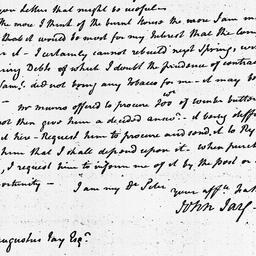 your letters that might be useful
The more I think of the burnt House the more I am
that it would be most for my Interest that the
it - I certainly cannot rebuild next Spring,
Debts of which I doubt the prudence of
did not bring any Tobacco for me - it may
Mr Munro offered to procure 300 wt of winter butter
not then give him a decided answr - it being
hire - Request him to procure and send it to Rye
him that I shall depend upon it - when
I request him to inform me of it by the post or
portunity - I am my Dr Peter your affte
John Jay
Augustus Jay Esqr